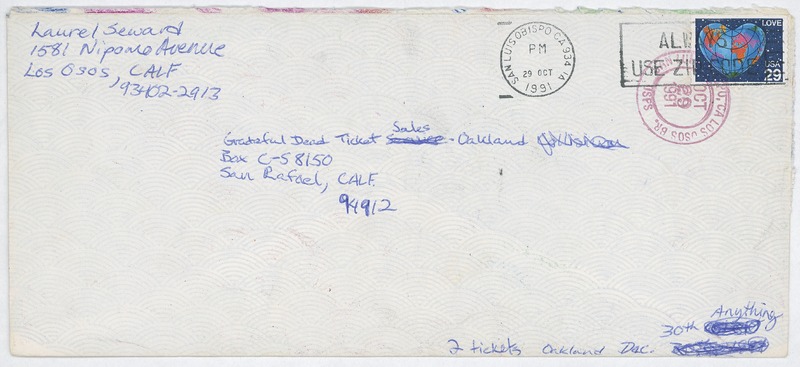 Laurel Seward
1581 Nipomo Avenue
Los Osos, CALF
93402-2913
SAN LUIS OBISPO CA 934 1A
PM
29 OCT
1991
ALWAYS
USE ZIP CODE
LOVE
USA
29
LOS OSOS BR.
OCT
29
1991
USPS
Sales
Grateful Dead Ticket Service - Oakland
Box C-S 8150
San Rafael, CALF.
94912
Anything
30th
2 tickets Oakland Dec.